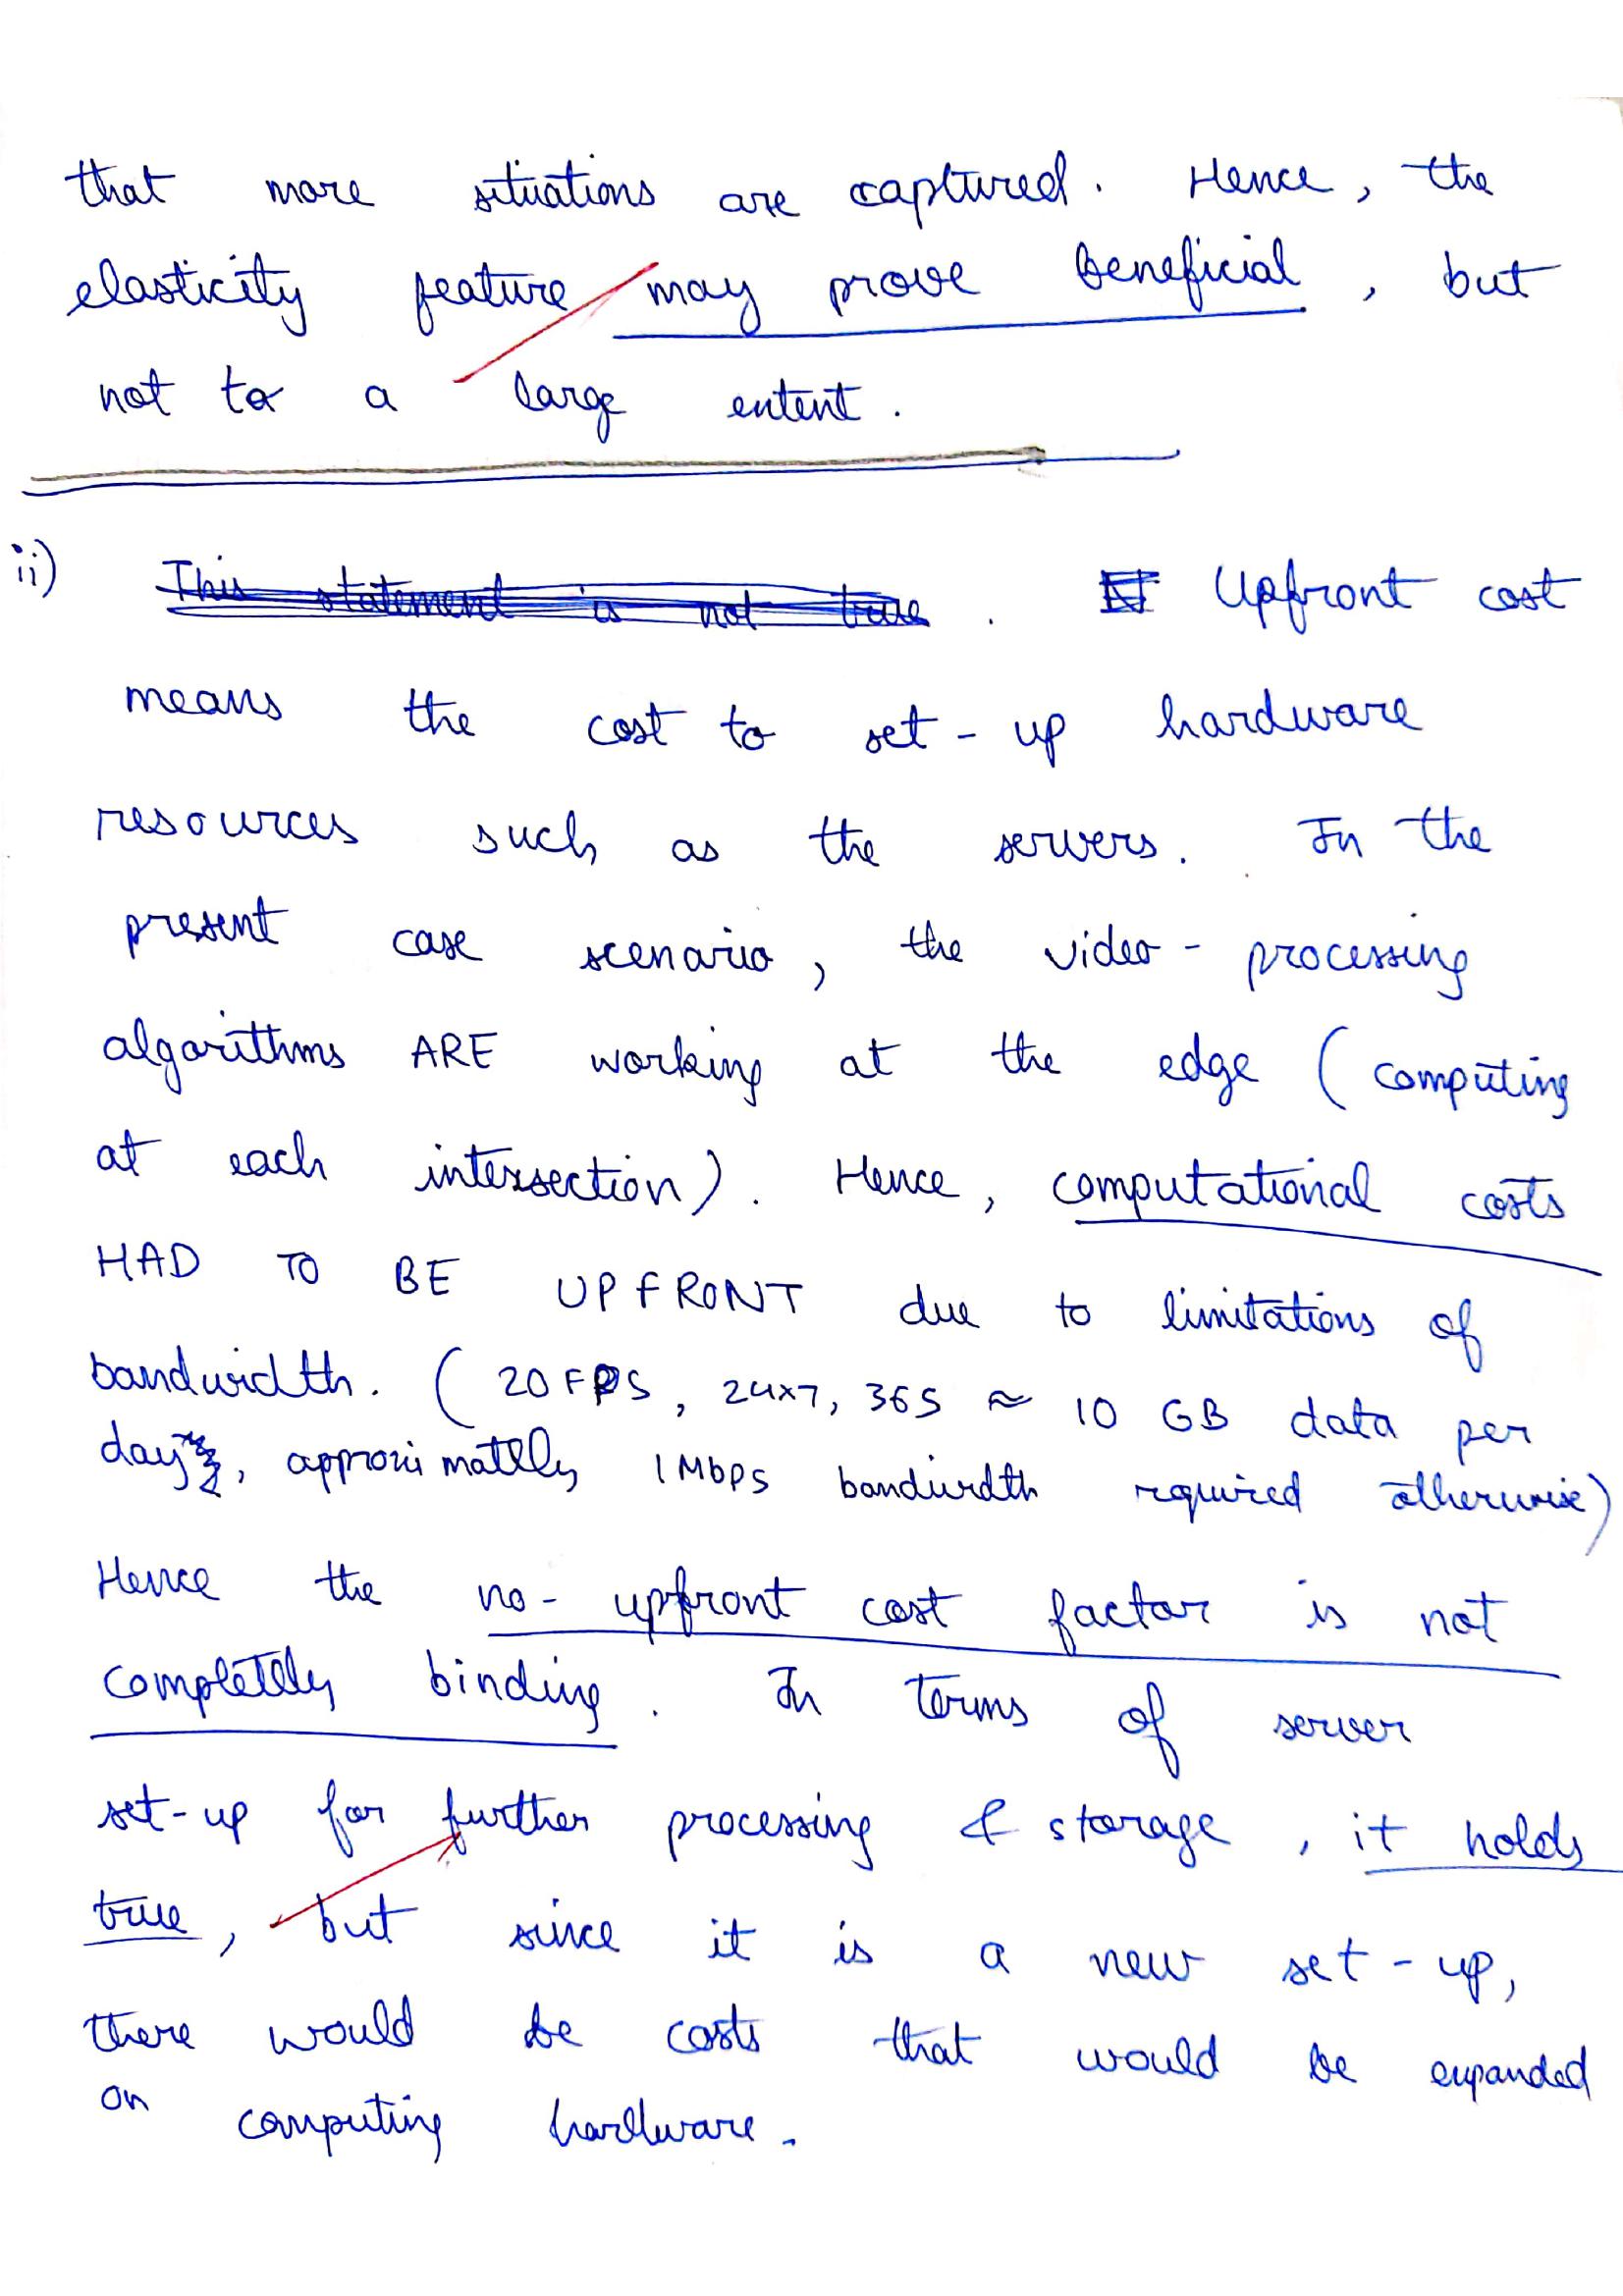 that more situations are captured. Hence, the
elasticity feature may prove beneficial, but
not to a large extent.
ii) This statement is not true. Upfront cost
means the cost to set-up hardware
resources such as the servers. In the
present case scenario, the video-processing
algorithms ARE working at the edge (computing
at each intersection). Hence, computational costs
HAD TO BE UPFRONT due to limitations of
bandwidth. (20 FPS, 24x7, 365 ≈ 10 GB data per
day, approximatelly 1 Mbps bandwidth required otherwise)
Hence the no-upfront cost factor is not
completely binding. In terms of server
set-up for further processing & storage, it holds
true, but since it is a new set-up,
there would be costs that would be expanded
on computing hardware.